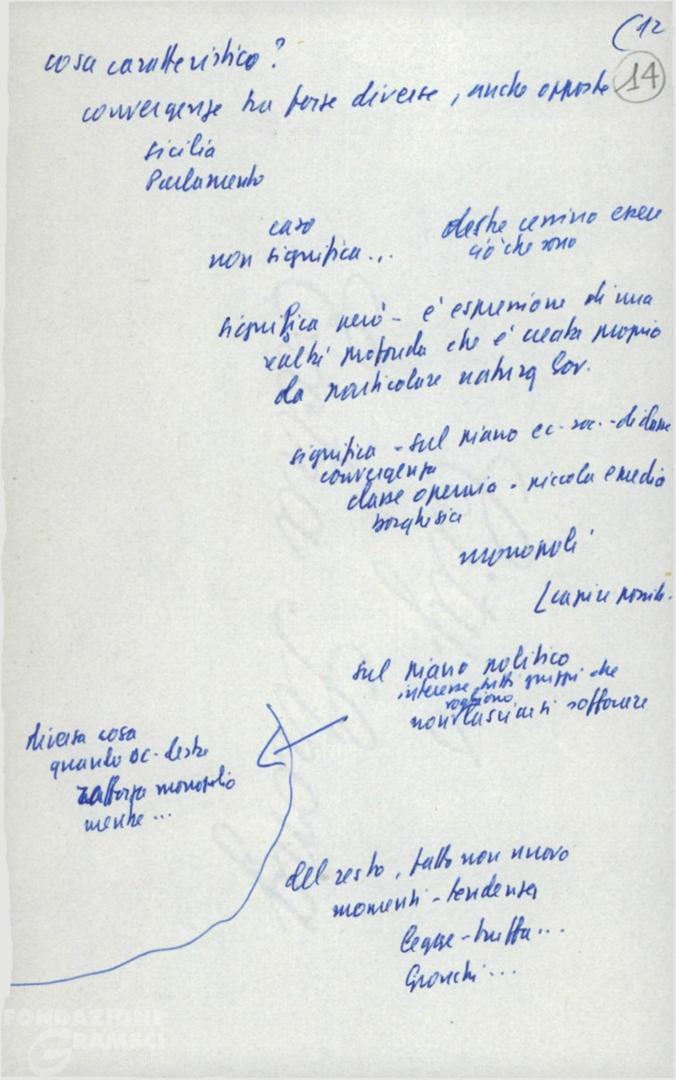 (12
14
cosa caratteristico?
convergenze tra forze diverse, anche opposte
Sicilia
Parlamento
caso
non significa...
destre cessino essere
ciò che sono
significa però - è espressione di una
realtà profonda che è creata proprio
da particolare natura Gov.
significa - sul piano ec-soc. - di classe
convergenza
classe operaia - piccola e media
borghesia
monopoli
sul piano politico
interesse tutti gruppi che
vogliono
non lasciarsi soffocare
diversa cosa
quando DC-destre
rafforza monopolio
mentre...
del resto, fatto non nuovo
momenti - tendenza
Legge-truffa...
Gronchi...
FONDAZIONE
GRAMSCI